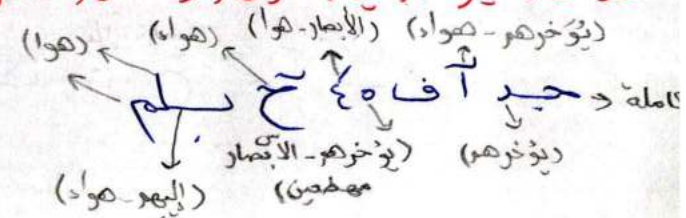 (يؤخرهم - هواء) (الأبصار - هوا) (هواء) (هوا)
كاملة د حبد آف ٤٥ حٓ بسلم
(يؤخرهم) (يؤخرهم - الأبصار
مهطعين)
(إليهم - هواء)